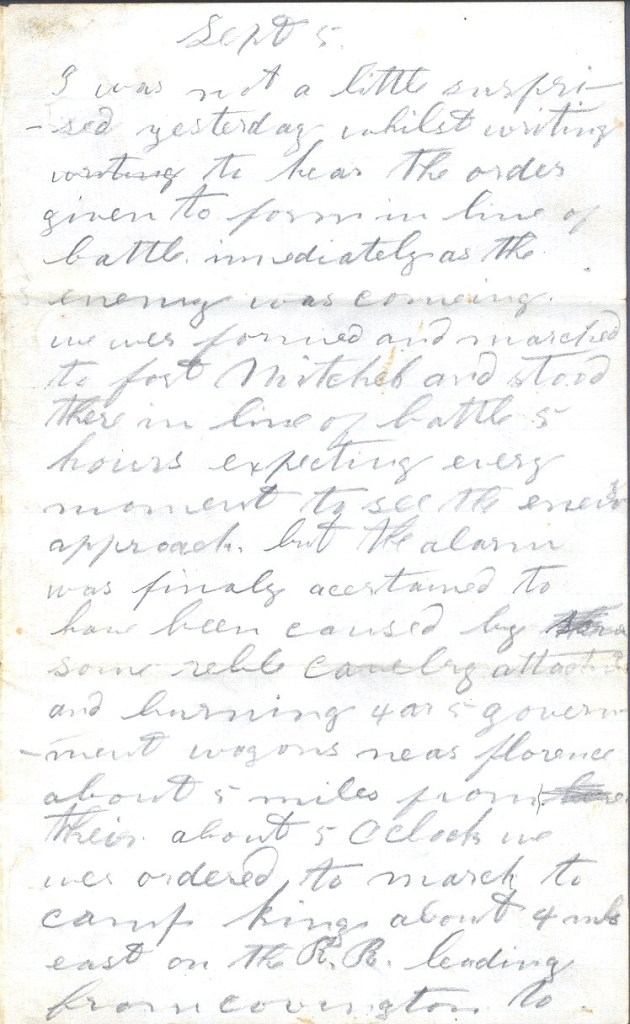 Sept 5.
I was not a little surpri-
-sed yesterday whilst writing
writing to hear the order
given to form in line of
battle. imediately as the
enemy was comeing.
we wer formed and marched
to fort Mitchel and stood
there in line of battle 5
hours expecting every
moment to see the enemy
approach. but the alarm
was finaly acertained to
have been caused by
some reble cavelry attacking
and burning 4 ar 5 govern
-ment wagons near florence
about 5 miles from
their. about 5 Oclock we
wer ordered to march to
camp king about 4 mls
east on the R.R. leading
from covington to